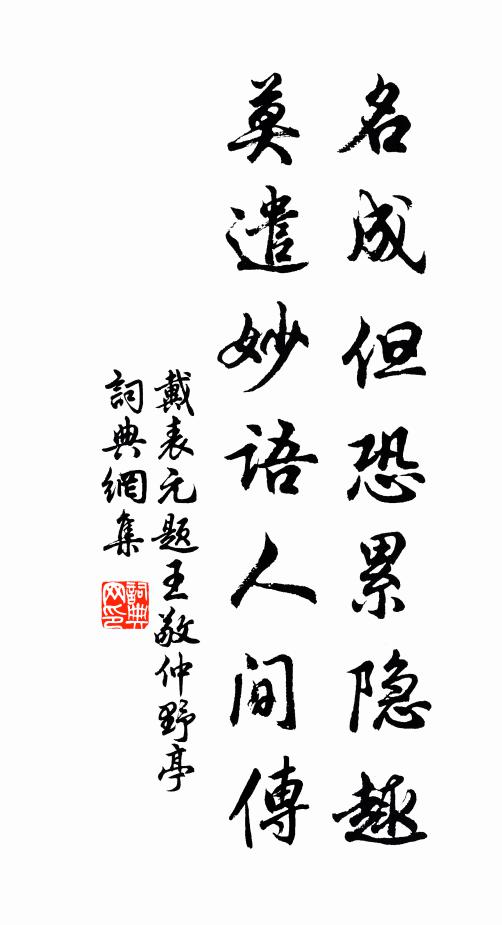 名成但恐累隐趣
莫遣妙语人间傳
戴表元题王敬仲野亭
詞典網集
詞典
网印